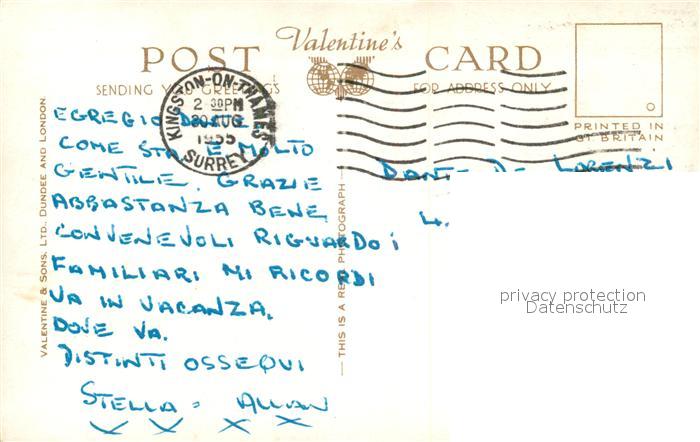 Valentine's
POST CARD
SENDING GREETINGS
FOR ADDRESS ONLY
KINGSTON-ON-THAMES
2-30PM
30 AUG
1955
SURREY
PRINTED IN
GT. BRITAIN
VALENTINE & SONS, LTD., DUNDEE AND LONDON.
EGREGIO
COME STA, E MOLTO
GENTILE, GRAZIE
ABBASTANZA BENE
CONVENEVOLI RIGUARDO i
FAMILIARI MI RICORDI
VA IN VACANZA.
DOVE VA.
DISTINTI OSSEQUI
STELLA = ALLAN
X X X X
THIS IS A REAL PHOTOGRAPH
LORENZI
4.
privacy protection
Datenschutz